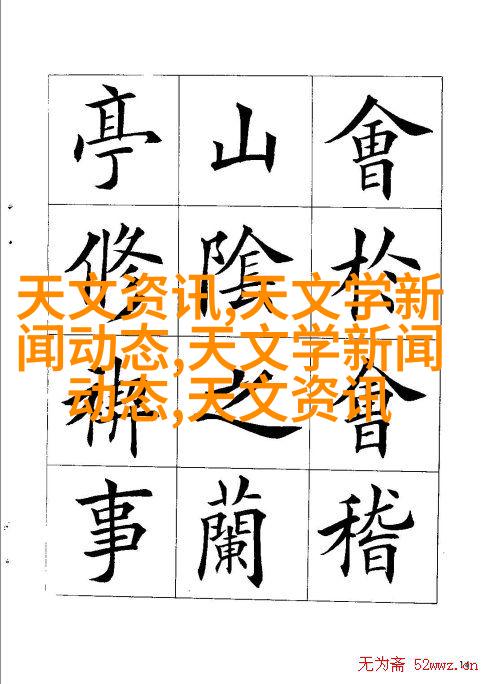 會於會稽
山陰之蘭
亭修禊事
天文资讯,天文学新
闻动态,天文学新闻
动态,天文资讯
无为斋 52wwz.cn